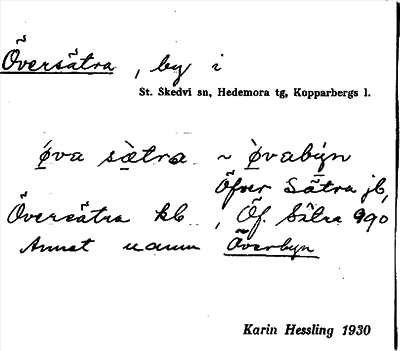 Översätra, by i
St. Skedvi sn, Hedemora tg, Kopparbergs l.
ø̀va sàtra ~ ø̀vabýn
Öfver Sätra jb,
Översätra kb, Öf. Sätra 990
Annat namn Överbyn
Karin Hessling 1930